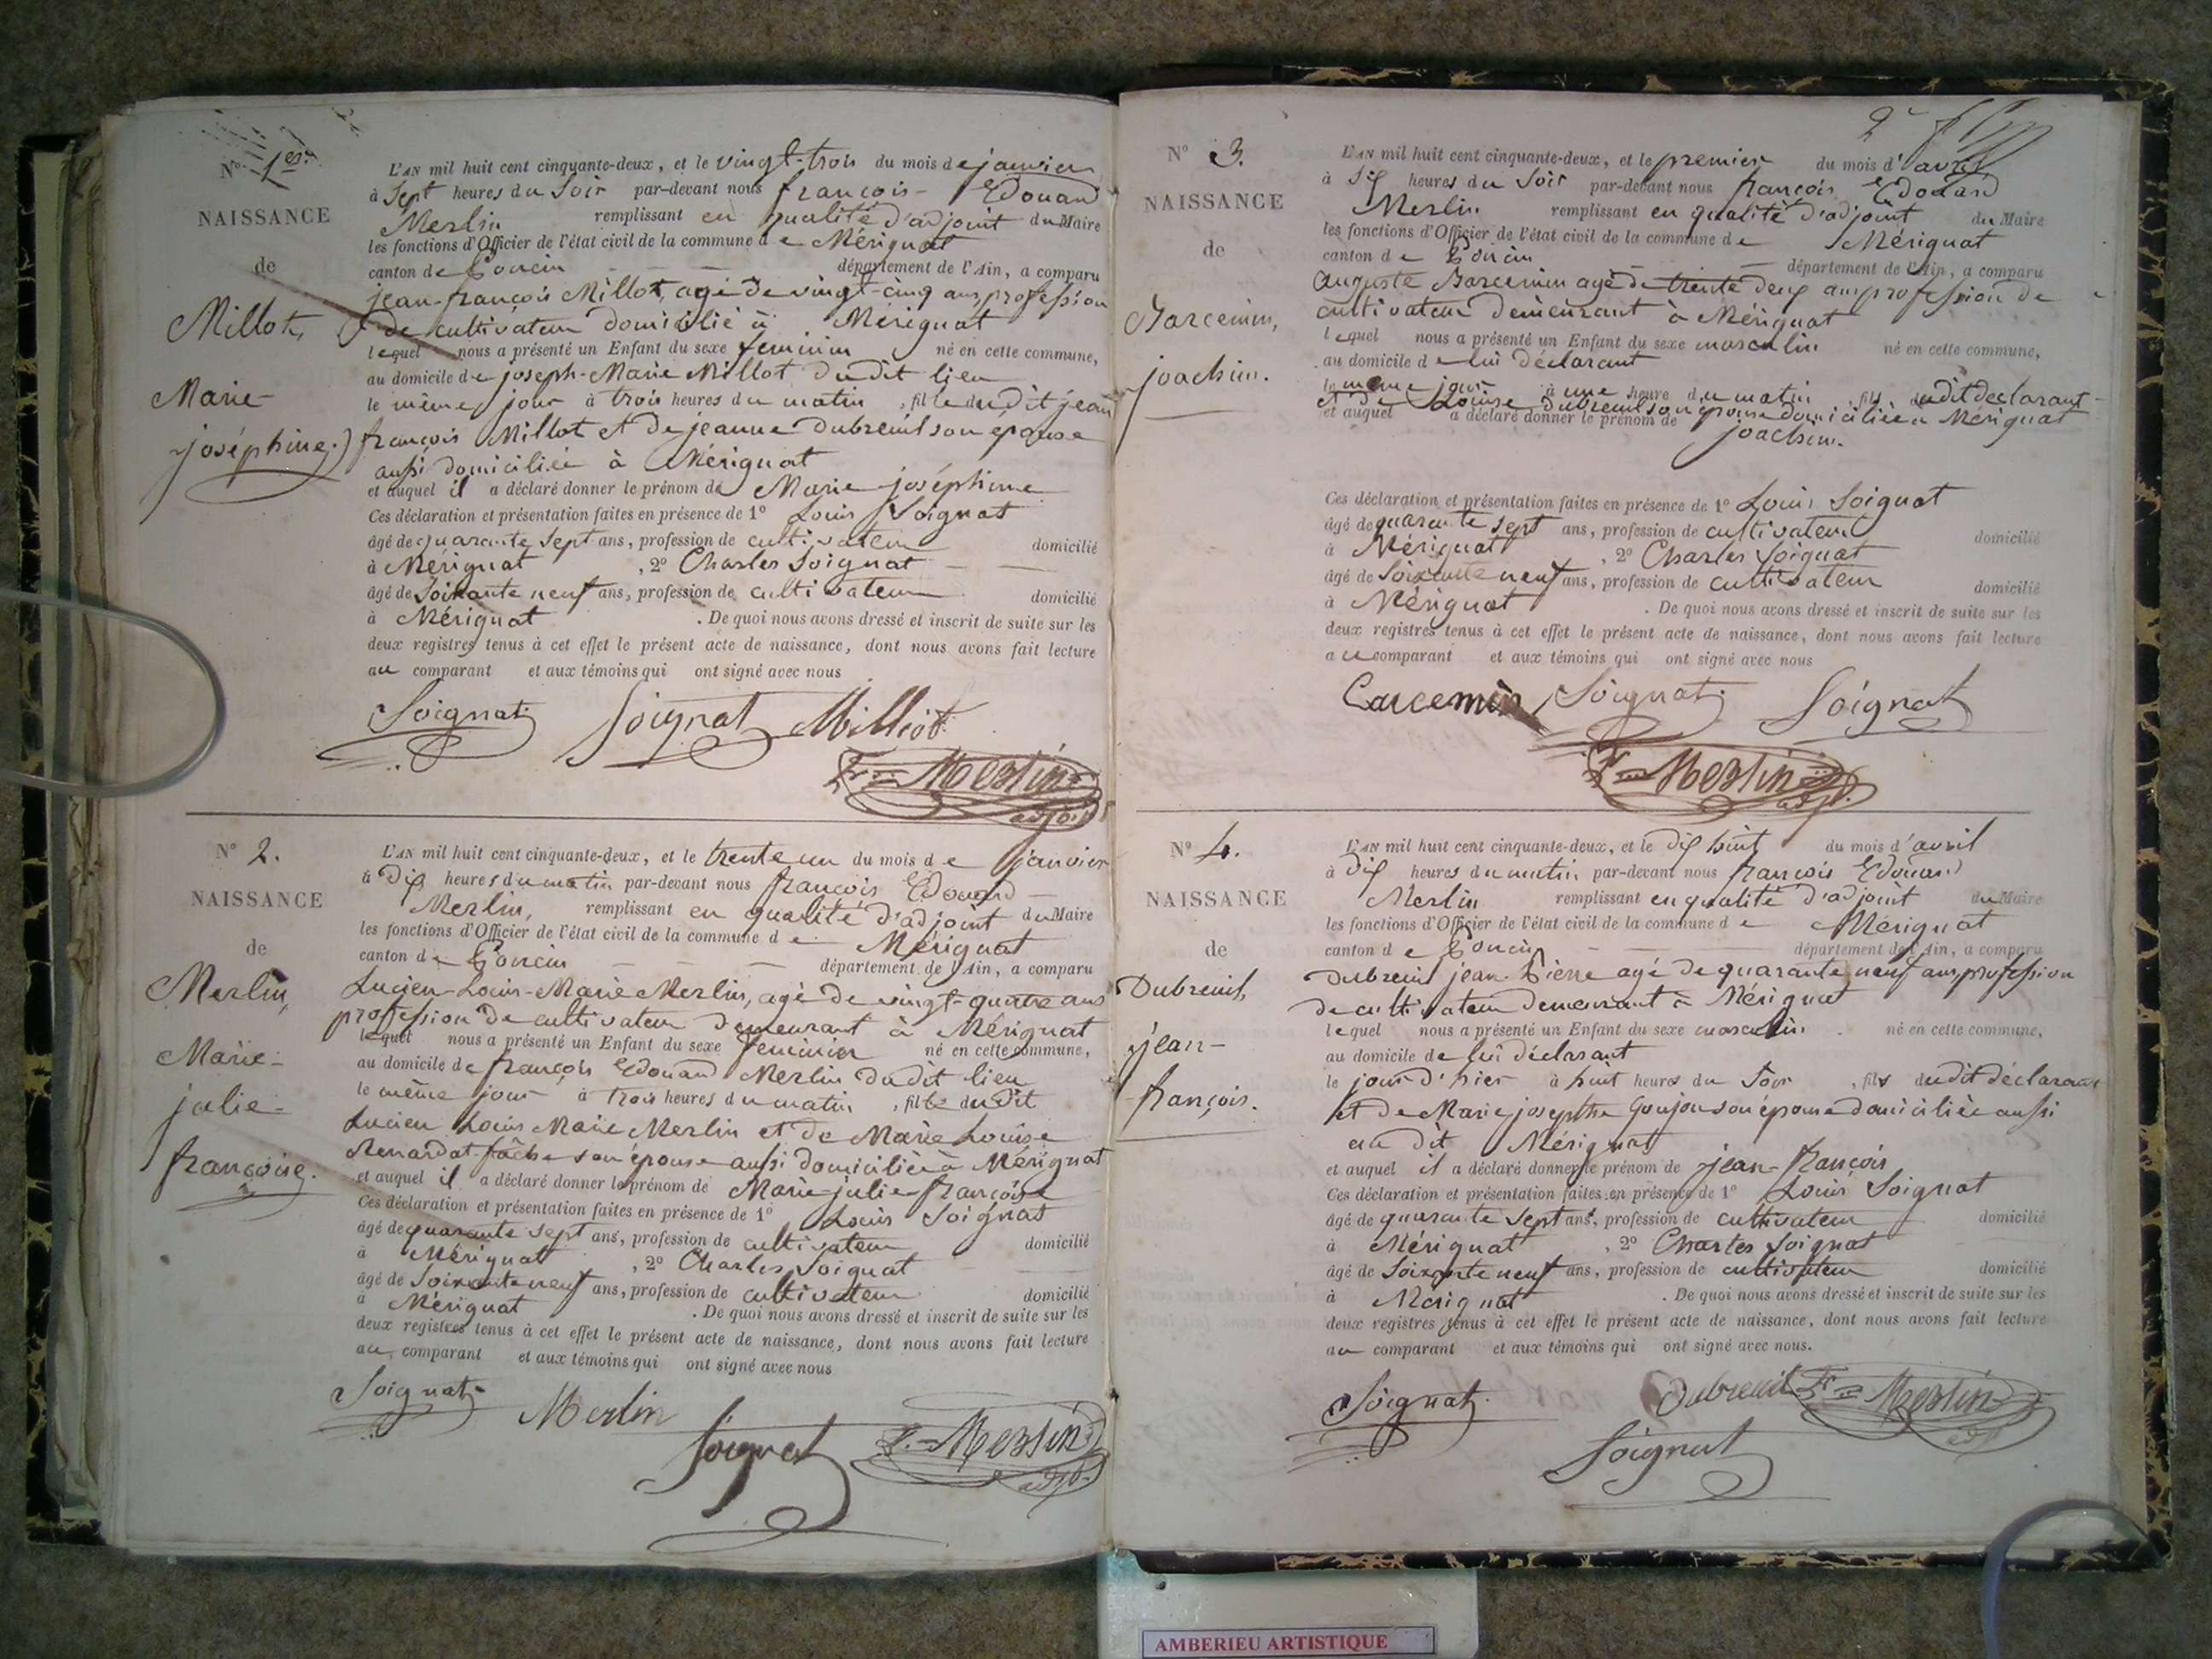 N° 1er.
NAISSANCE
de
Millot,
Marie-
joséphine.)
L'AN mil huit cent cinquante-deux, et le vingt-trois du mois de janvier
à Sept heures du Soir par-devant nous françois- Edouard
Merlin remplissant en qualité d'adjoint du Maire
les fonctions d'Officier de l'état civil de la commune de Mérignat
canton de Poncin département de l'Ain, a comparu
jean-françois Millot, agé de vingt-cinq ans profession
de cultivateur domicilié à Mérignat
lequel nous a présenté un Enfant du sexe feminin né en cette commune,
au domicile de joseph-Marie Millot dudit lieu
le même jour à trois heures du matin, fille dudit jean
françois Millot et de jeanne Dubreuil son épouse
aussi domiciliée à Mérignat
et auquel il a déclaré donner le prénom de Marie joséphine
Ces déclaration et présentation faites en présence de 1° Louis Soignat
âgé de quarante Sept ans, profession de cultivateur domicilié
à Mérignat, 2° Charles Soignat
âgé de Soixante neuf ans, profession de cultivateur domicilié
à Mérignat. De quoi nous avons dressé et inscrit de suite sur les
deux registres tenus à cet effet le présent acte de naissance, dont nous avons fait lecture
au comparant et aux témoins qui ont signé avec nous
Soignat Soignat Milliot
Merlin
adj.
N° 2.
NAISSANCE
de
Merlin,
Marie-
julie-
françoise.
L'AN mil huit cent cinquante-deux, et le trente un du mois de janvier
à dix heures du matin par-devant nous françois Edouard
Merlin, remplissant en qualité d'adjoint du Maire
les fonctions d'Officier de l'état civil de la commune de Mérignat
canton de Poncin département de l'Ain, a comparu
Lucien-Louis-Marie Merlin, agé de vingt-quatre ans
profession de cultivateur demeurant à Mérignat
lequel nous a présenté un Enfant du sexe feminin né en cette commune,
au domicile de françois Edouard Merlin dudit lieu
le même jour à trois heures du matin, fille dudit
Lucien Louis Marie Merlin et de Marie Louise
Renardat-fâche son épouse aussi domiciliée à Mérignat
et auquel il a déclaré donner le prénom de Marie-julie-françoise
Ces déclaration et présentation faites en présence de 1° Louis Soignat
âgé de quarante sept ans, profession de cultivateur domicilié
à Mérignat, 2° Charles Soignat
âgé de Soixante neuf ans, profession de cultivateur domicilié
à Mérignat. De quoi nous avons dressé et inscrit de suite sur les
deux registres tenus à cet effet le présent acte de naissance, dont nous avons fait lecture
au comparant et aux témoins qui ont signé avec nous
Soignat Merlin Soignat Merlin
adj.
2e
N° 3.
NAISSANCE
de
Jarcemin,
joachim.
L'AN mil huit cent cinquante-deux, et le premier du mois d'avril
à Six heures du Soir par-devant nous françois Edouard
Merlin remplissant en qualité d'adjoint du Maire
les fonctions d'Officier de l'état civil de la commune de Mérignat
canton de Poncin département de l'Ain, a comparu
auguste Jarcemin agé de trente deux ans profession de
cultivateur demeurant à Mérignat
lequel nous a présenté un Enfant du sexe masculin né en cette commune,
au domicile de lui déclarant
le même jour à une heure du matin, fils dudit déclarant
et de Louise Dubreuil son épouse domiciliée à Mérignat
et auquel a déclaré donner le prénom de joachim.
Ces déclaration et présentation faites en présence de 1° Louis Soignat
âgé de quarante sept ans, profession de cultivateur domicilié
à Mérignat, 2° Charles Soignat
âgé de Soixante neuf ans, profession de cultivateur domicilié
à Mérignat. De quoi nous avons dressé et inscrit de suite sur les
deux registres tenus à cet effet le présent acte de naissance, dont nous avons fait lecture
au comparant et aux témoins qui ont signé avec nous
Carcemin Soignat Soignat
Merlin
adj.
N° 4.
NAISSANCE
de
Dubreuil,
jean-
françois.
L'AN mil huit cent cinquante-deux, et le dix huit du mois d'avril
à dix heures du matin par-devant nous françois Edouard
Merlin remplissant en qualité d'adjoint du Maire
les fonctions d'Officier de l'état civil de la commune de Mérignat
canton de Poncin département de l'Ain, a comparu
Dubreuil jean-Pierre agé de quarante neuf ans profession
de cultivateur demeurant à Mérignat
lequel nous a présenté un Enfant du sexe masculin né en cette commune,
au domicile de lui déclarant
le jour d'hier à huit heures du Soir, fils dudit déclarant
et de Marie josephte Goujon son épouse domiciliée aussi
au dit Mérignat
et auquel il a déclaré donner le prénom de jean-françois
Ces déclaration et présentation faites en présence de 1° Louis Soignat
âgé de quarante Sept ans, profession de cultivateur domicilié
à Mérignat, 2° Charles Soignat
âgé de Soixante neuf ans, profession de cultivateur domicilié
à Mérignat. De quoi nous avons dressé et inscrit de suite sur les
deux registres tenus à cet effet le présent acte de naissance, dont nous avons fait lecture
au comparant et aux témoins qui ont signé avec nous.
Soignat Dubreuil Merlin
adj.
Soignat
AMBERIEU ARTISTIQUE